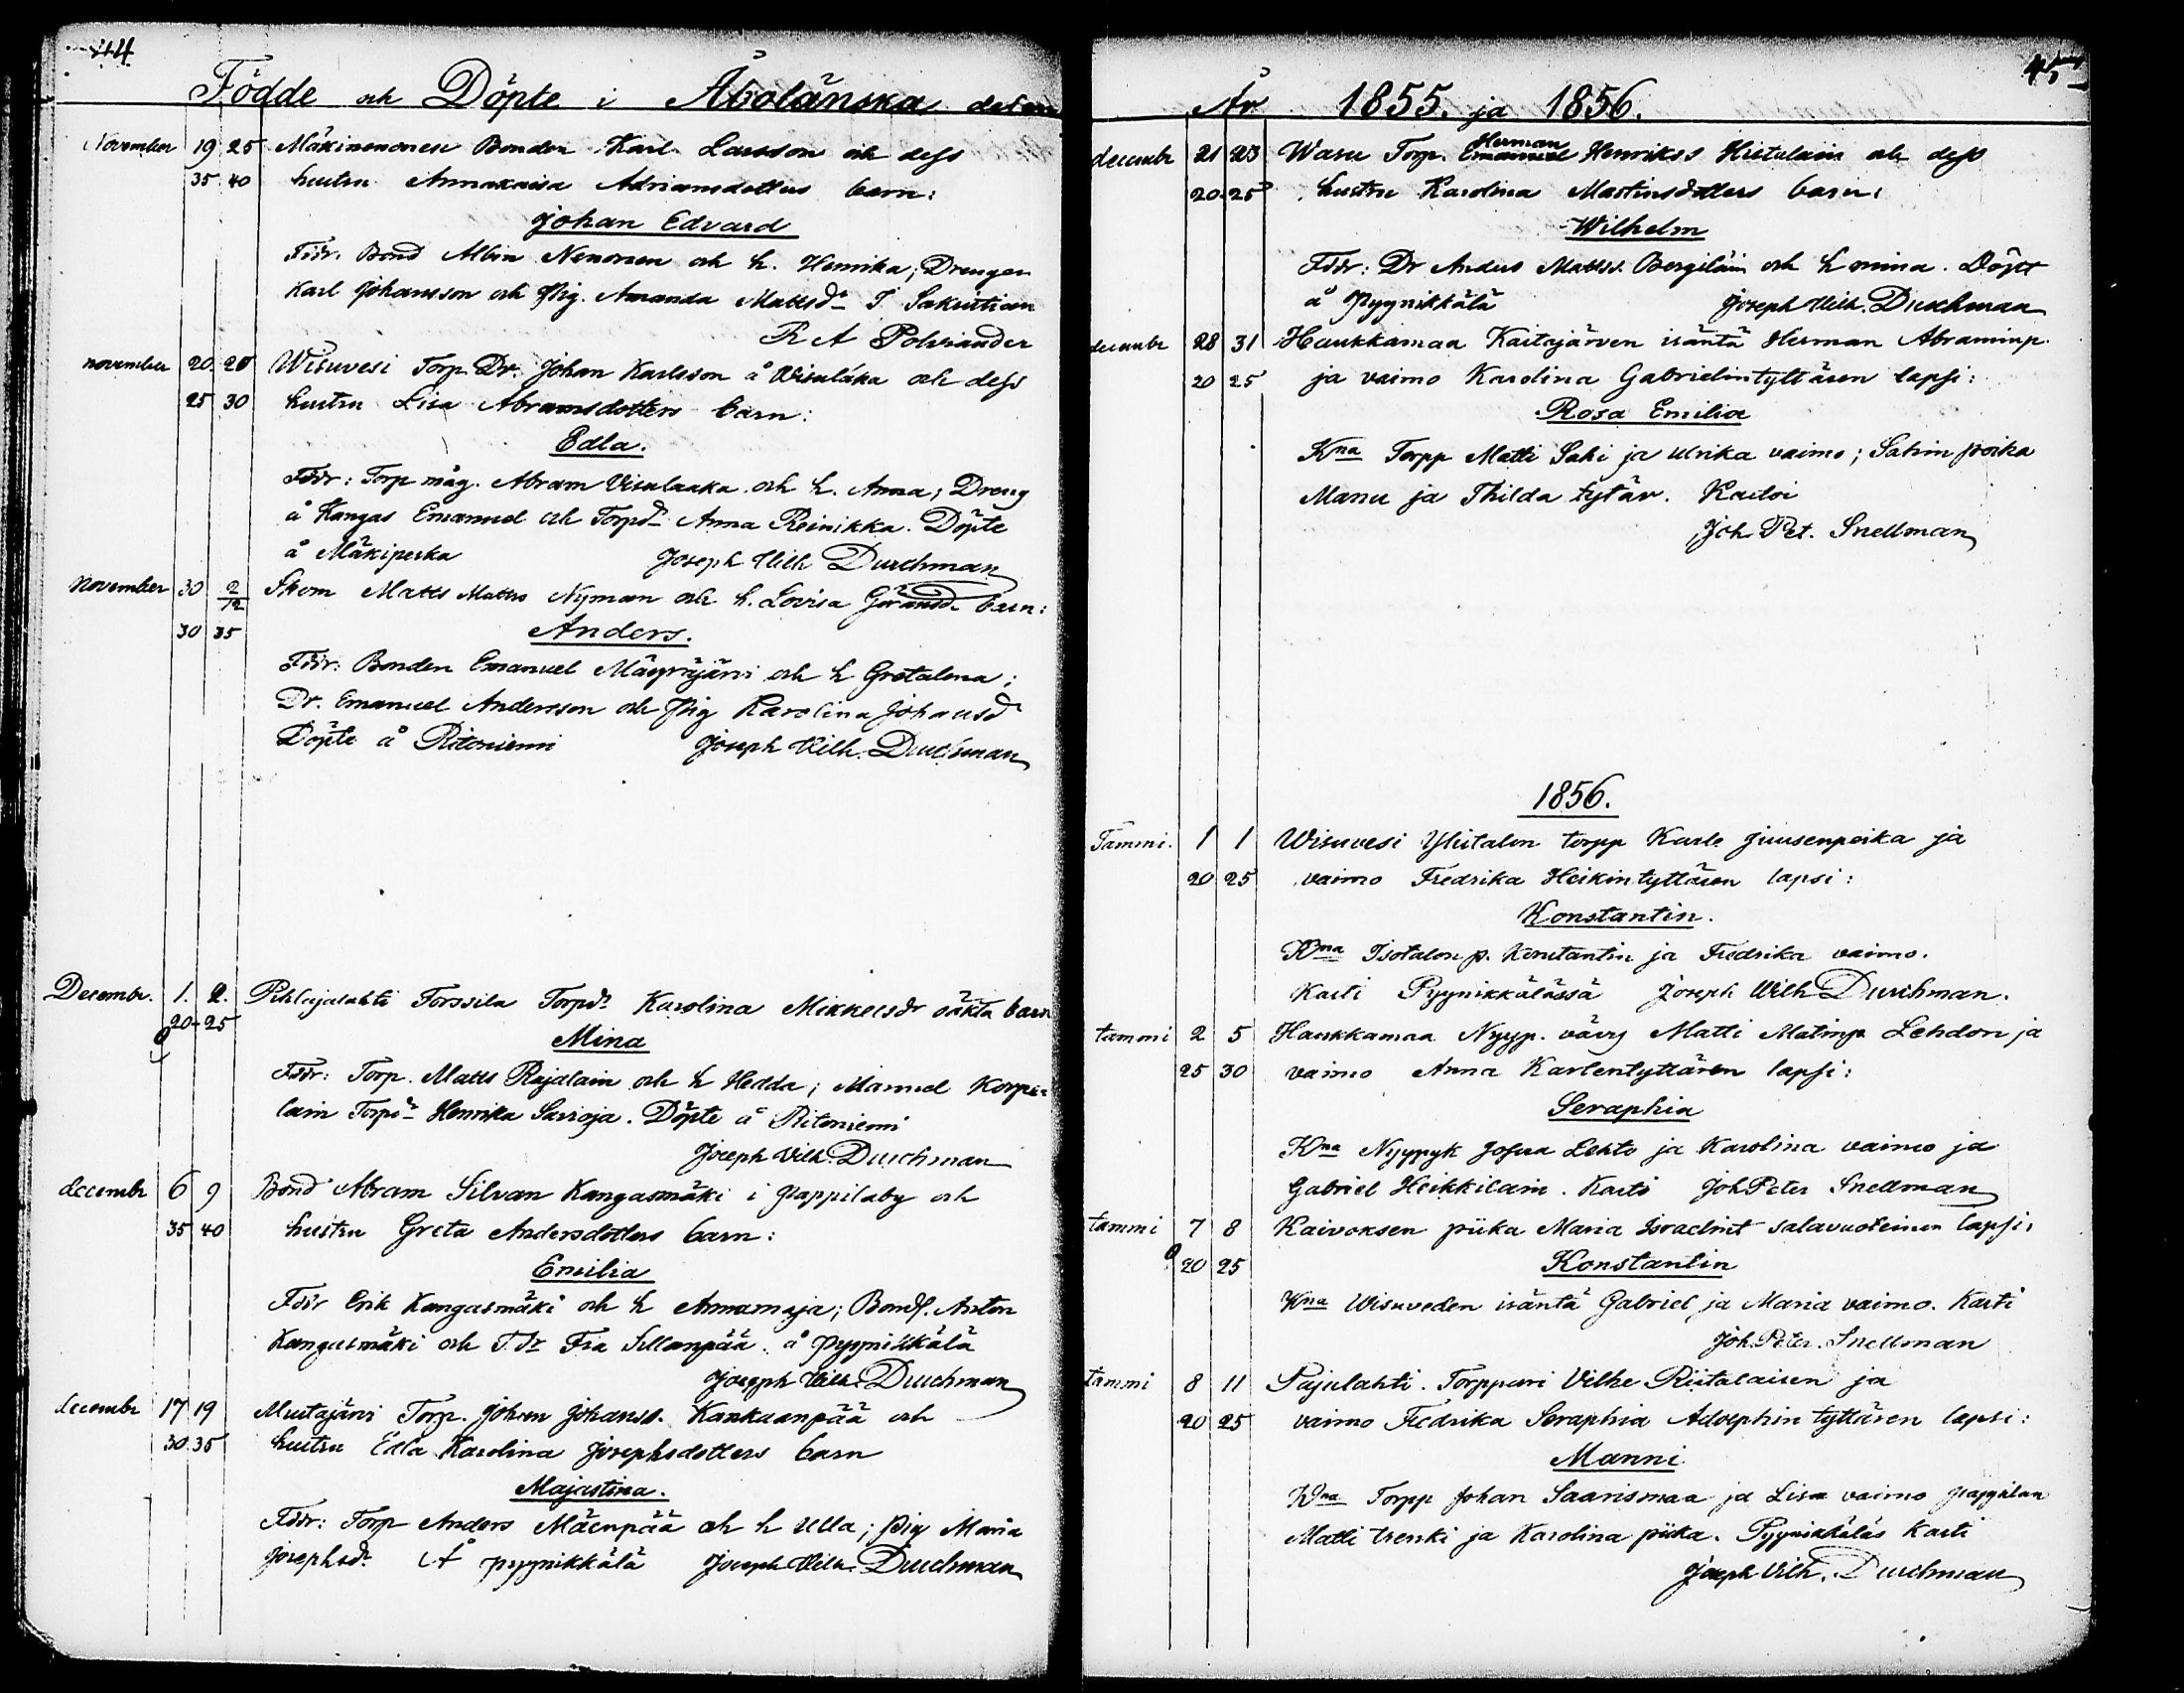 44
Födde och Döpte i Åbolänska delen
November 19 25 Mäkinenonen Bonden Karl Larsson och dess
35 40 hustru Annakaisa Adriansdotters barn:
Johan Edvard
Fddr. Bond Albin Nenonen och h. Henrika; Drengen
Karl Johansson och Pig. Amanda Mattsdr
R A Polviander
november 20 20 Wisuvesi Torp. Dr. Johan Karlsson å Wisuläka och dess
25 30 hustru Lisa Abramsdotters barn:
Edla.
Fddr: Torp måg. Abram Visulaaka och h. Anna; Dreng
å Kangas Emanuel och Torpdr Anna Reinikka. Döpte
å Mäkiperka Joseph Vilh Durchman
November 30 2/12 Skom Matts Matts Nyman och h. Lovisa Göransd. barn:
30 35 Anders.
Fddr: Bonden Emanuel Mäyryjärvi och h Gretalena;
Dr. Emanuel Andersson och Pig Karolina Johansdr
Döpte å Ritoniemi Joseph Vilh. Durchman
Decembr. 1. 2. Pihlajalahti Forssila Torpdr Karolina Mikkelsdr oäkta barn
20-25 Mina
Fddr: Torp. Matts Rajalain och h Hedda; Manuel Korpe-
lain Torpdr Henrika Sarioja. Döpte å Ritoniemi
Joseph Vilh. Durchman
decembr 6 9 Bond Abram Silvan Kangasmäki i Pappilaby och
35 40 hustru Greta Andersdotters barn:
Emilia
Fddr Erik Kangasmäki och h Annamaja; Bonds. Anton
Kangasmäki och T.dr Fia Sillanpää. å Pyynikkälä
Joseph Vilh. Durchman
decembr 17 19 Mustajärvi Torp. Johan Johanss. Kankaanpää och
30 35 hustru Edla Karolina Josephsdotters barn
Majastina.
Fddr: Torp Anders Mäenpää och h Ulla; pig Maria
Josephsdr. Å pyynikkälä Joseph Vilh. Durchman
45
År 1855. ja 1856.
decembr 21 23 Wasu Torp. Herman Emanuel Henrikss Hietalain och dess
20-25 hustru Karolina Martinsdotters barn:
Wilhelm
Fddr: Dr Anders Mattss. Bergiläin och h mina. Döpt
å Pyynikkälä Joseph Vilh. Durchman
decembr 28 31 Haukkamaa Kaitajärven isäntä Herman Abraminp.
20 25 ja vaimo Karolina Gabrielintyttären lapsi:
Rosa Emilia
Kna Torpp Matti Sahi ja Ulrika vaimo; Sahin poika
Manu ja Thilda tytär. Kastoi
Joh. Pet. Snellman
1856.
Tammi. 1 1 Wisuvesi Ylitalon torpp Karle Juusenpoika ja
20 25 vaimo Fredrika Heikintyttären lapsi:
Konstantin.
Kna Isotalon p. Konstantin ja Fredrika vaimo.
Kasti Pyynikkälässä Joseph Wilh Durchman.
tammi 2 5 Haukkamaa Nyyp. vävy Matti Matinp Lehdon ja
25 30 vaimo Anna Karlentyttären lapsi:
Seraphia
Kna Nyypyk Josua Lehto ja Karolina vaimo ja
Gabriel Heikkilain. Kasti Joh Peter Snellman
tammi 7 8 Kaivoksen piika Maria Israelint salavuoteinen lapsi:
20 25 Konstantin
Kna Wisuveden isäntä Gabriel ja Maria vaimo. Kasti
Joh. Peter. Snellman
tammi 8 11 Pajulahti. Torppari Vilhe Riitalaisen ja
20 25 vaimo Fredrika Seraphia Adolphin tyttären lapsi:
Manni
Kna Torpp Johan Saarismaa ja Lisa vaimo Pappilan
Matti trenki ja Karolina piika. Pyynikkäläs Kasti
Joseph Vilh. Durchman